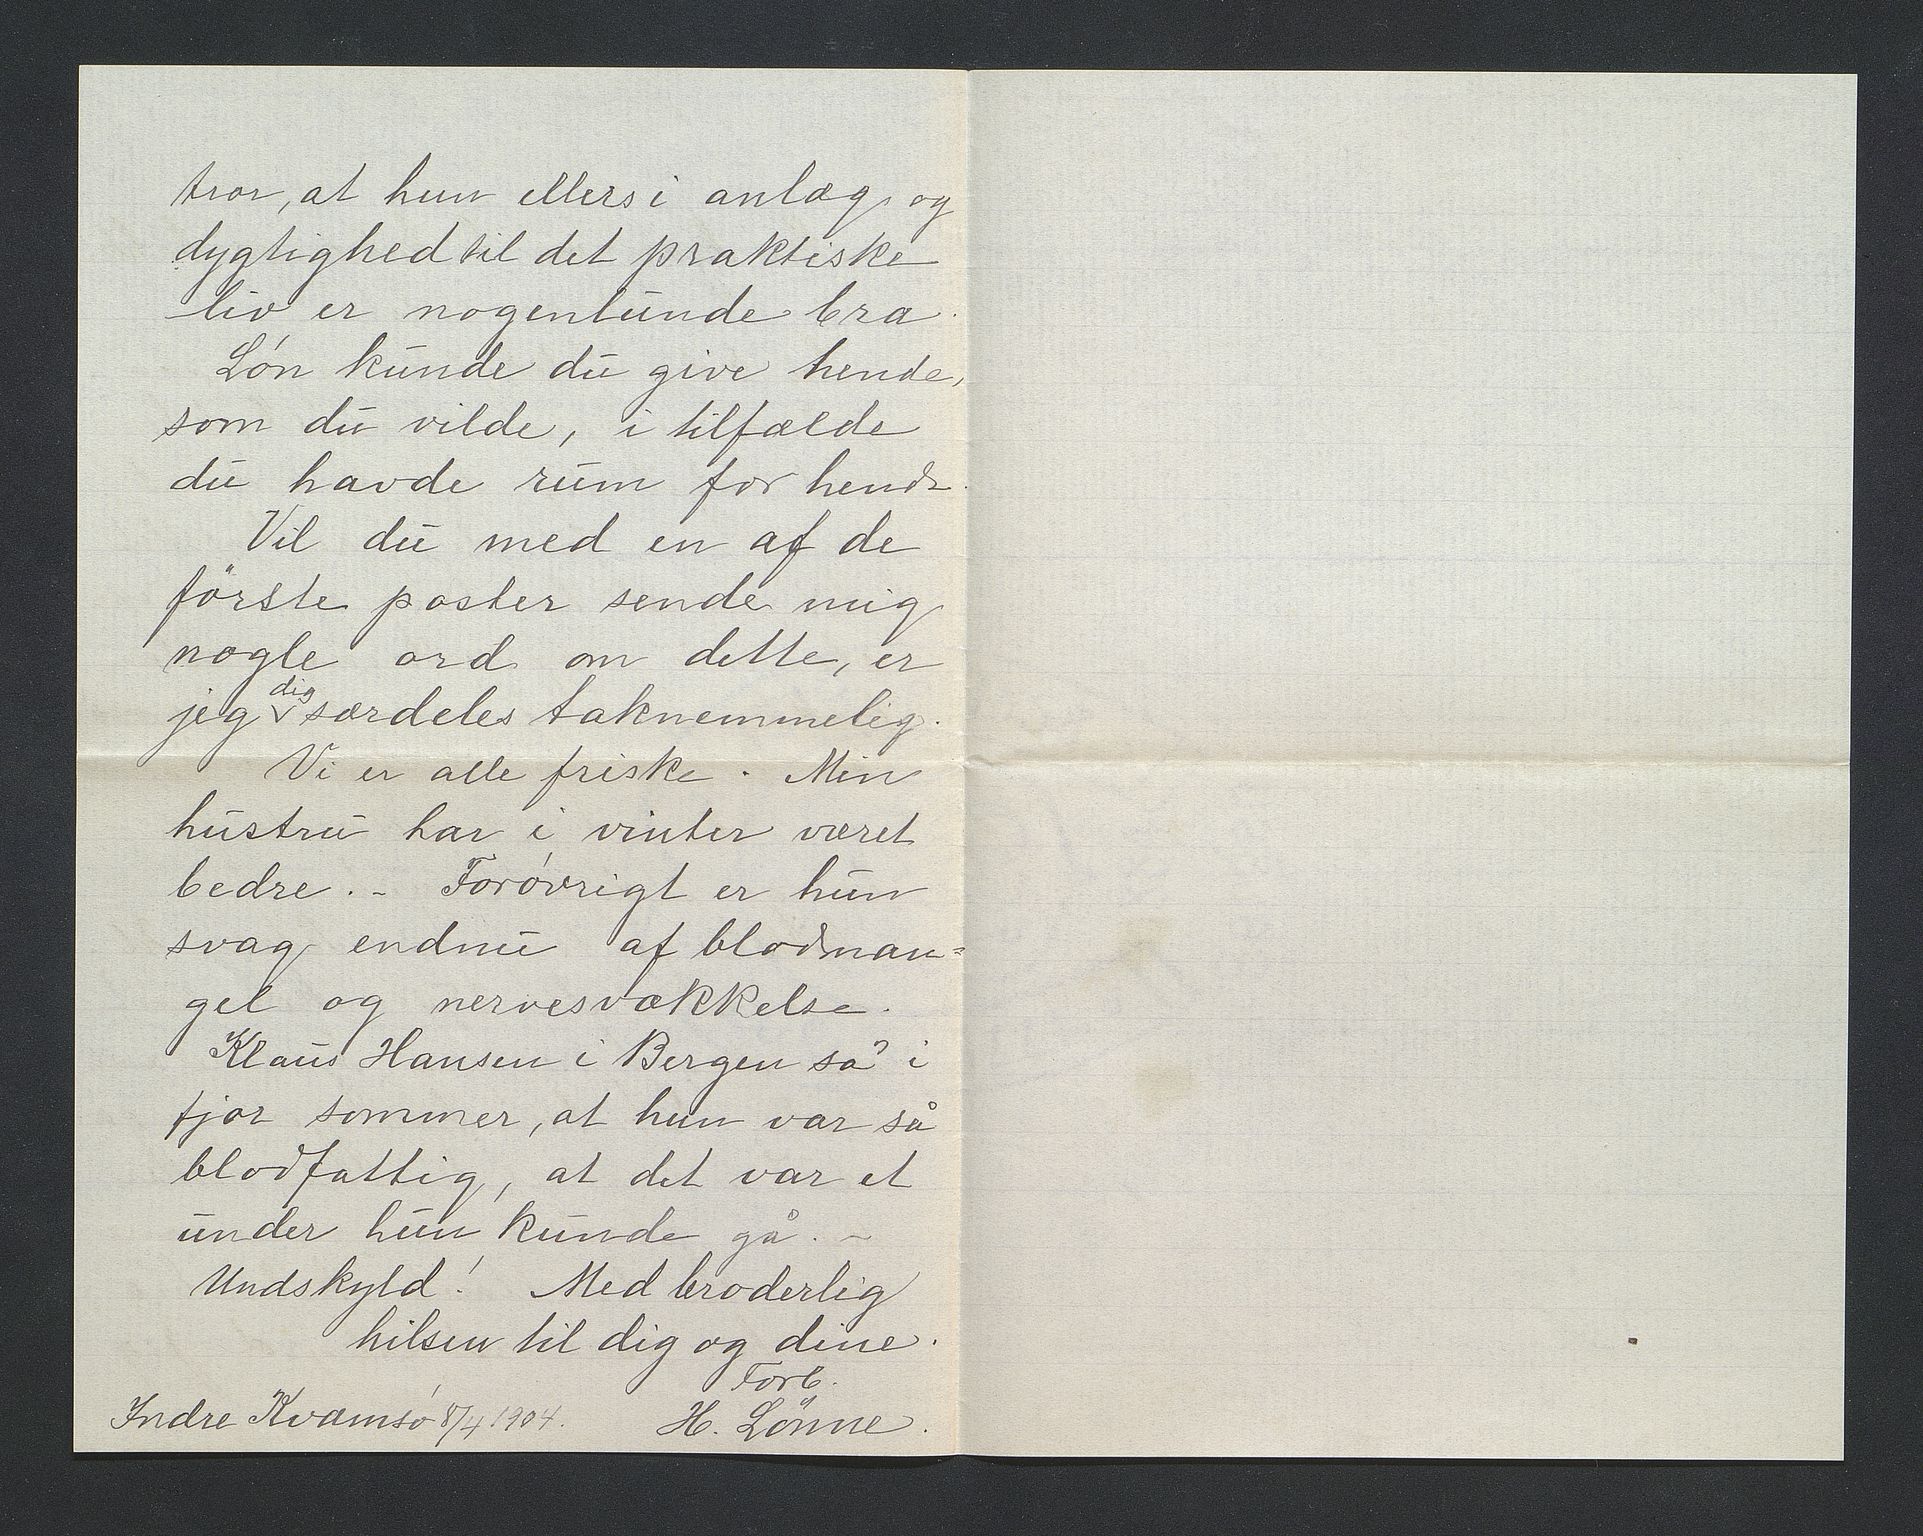 tror, at hun ellers i anlæg og
dygtighed til det praktiske
liv er nogenlunde bra.
Løn kunde du give hende,
som du vilde, i tilfælde
du havde rum for hende.
Vil du med en af de
første poster sende mig
nogle ord om dette, er
jeg dig særdeles taknemmelig.
Vi er alle friske. Min
hustru har i vinter været
bedre. – Forøvrigt er hun
svag endnu af blodman=
gel og nervesvækkelse.
Klaus Hansen i Bergen sa' i
fjor sommer, at hun var så
blodfattig, at det var et
under hun kunde gå. –
Undskyld! Med broderlig
hilsen til dig og dine.
Forb.
Indre Kvamsø 8/4 1904. H. Lönne.